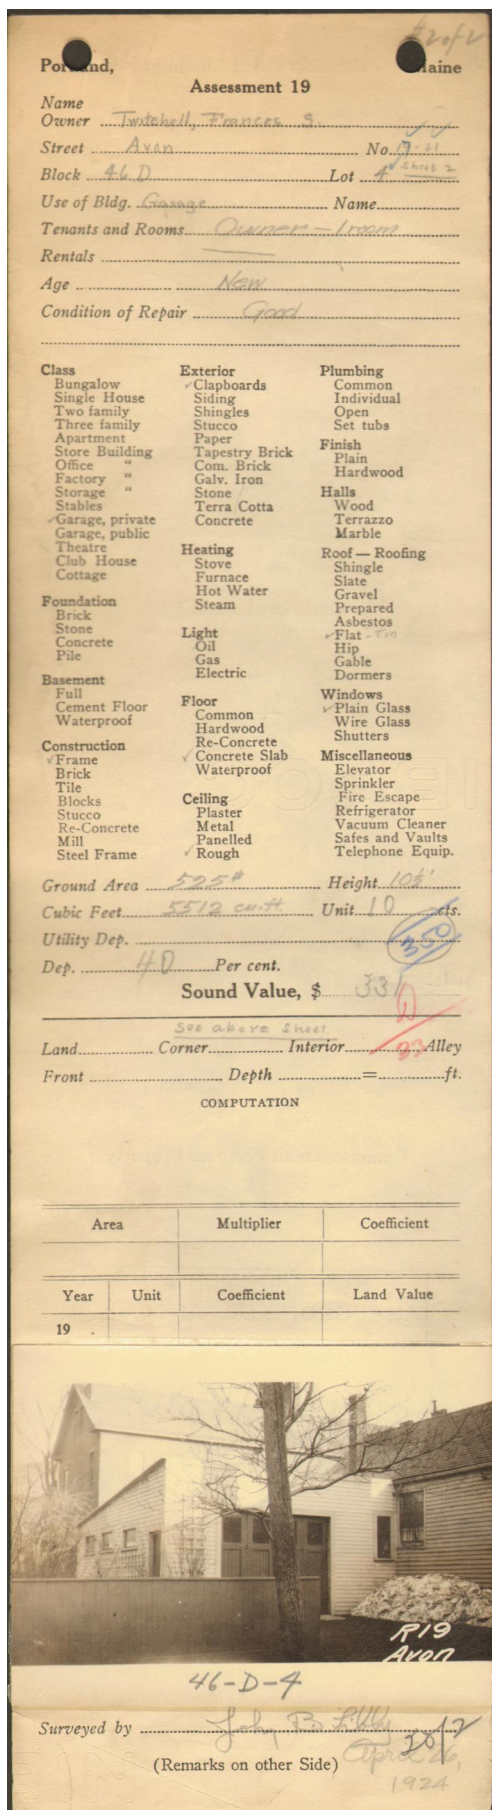 #2 of 2
Portland, Maine
Assessment 19
Name
Owner Twitchell, Frances S.
Street Avon No. 19-21
Block 46 D Lot 4 Sheet 2
Use of Bldg. Garage Name
Tenants and Rooms Owner - 1 room
Rentals
Age New
Condition of Repair Good
Class
Bungalow
Single House
Two family
Three family
Apartment
Store Building
Office "
Factory "
Storage "
Stables
✓Garage, private
Garage, public
Theatre
Club House
Cottage
Foundation
Brick
Stone
Concrete
Pile
Basement
Full
Cement Floor
Waterproof
Construction
✓Frame
Brick
Tile
Blocks
Stucco
Re-Concrete
Mill
Steel Frame
Exterior
✓Clapboards
Siding
Shingles
Stucco
Paper
Tapestry Brick
Com. Brick
Galv. Iron
Stone
Terra Cotta
Concrete
Heating
Stove
Furnace
Hot Water
Steam
Light
Oil
Gas
Electric
Floor
Common
Hardwood
Re-Concrete
✓Concrete Slab
Waterproof
Ceiling
Plaster
Metal
Panelled
✓Rough
Plumbing
Common
Individual
Open
Set tubs
Finish
Plain
Hardwood
Halls
Wood
Terrazzo
Marble
Roof — Roofing
Shingle
Slate
Gravel
Prepared
Asbestos
✓Flat - Tin
Hip
Gable
Dormers
Windows
✓Plain Glass
Wire Glass
Shutters
Miscellaneous
Elevator
Sprinkler
Fire Escape
Refrigerator
Vacuum Cleaner
Safes and Vaults
Telephone Equip.
Ground Area 525# Height 10½'
Cubic Feet 5512 cu.ft. Unit 10 cts.
Utility Dep. 350
Dep. 40 Per cent.
Sound Value, $ 331
See above Sheet
Land Corner Interior Alley
Front Depth = ft.
COMPUTATION
Area Multiplier Coefficient
Year Unit Coefficient Land Value
19 .
R19
Avon
46-D-4
Surveyed by John B
(Remarks on other Side) April 26,
1924